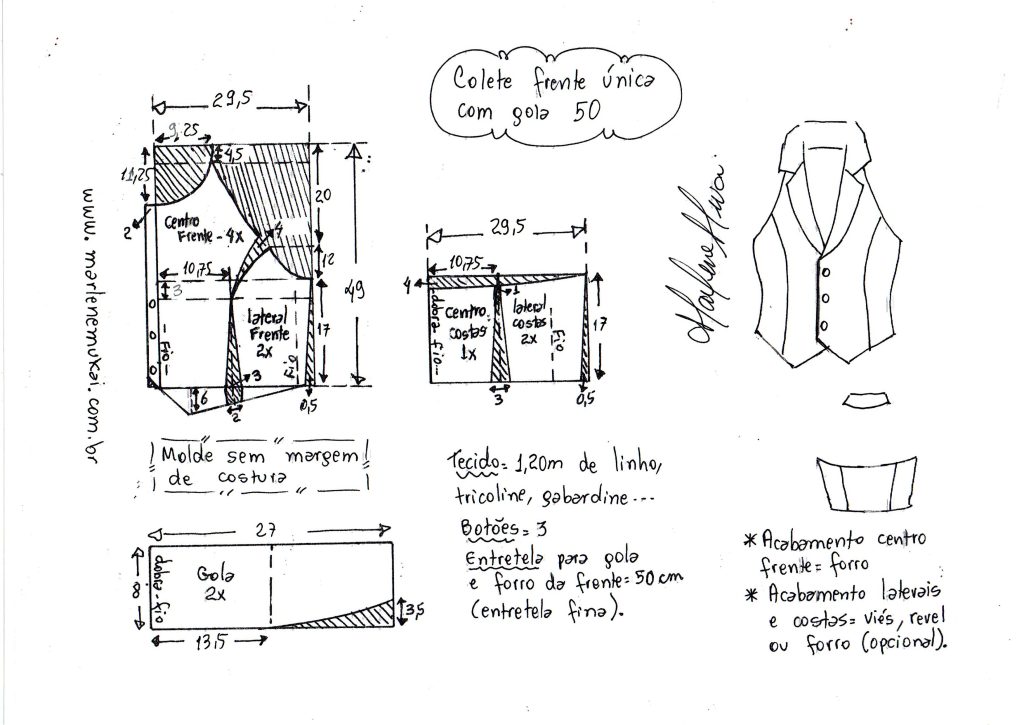 Colete frente única
com gola 50
29,5
9,25
4,5
11,25
20
2
Centro
Frente - 4x
4
12
10,75
3
49
17
lateral
Frente
2x
Fio
Fio
3
6
2
0,5
www.marlenemukai.com.br
Molde sem margem
de costura
29,5
10,75
4
1
dobra fio
Centro
costas
1x
lateral
costas
2x
Fio
17
3
0,5
27
8
dobra-fio
Gola
2x
3,5
13,5
Tecido = 1,20m de linho,
tricoline, gabardine...
Botões = 3
Entretela para gola
e forro da frente = 50 cm
(entretela fina).
Marlene Mukai
* Acabamento centro
frente = forro
* Acabamento laterais
e costas = viés, revel
ou forro (opcional).